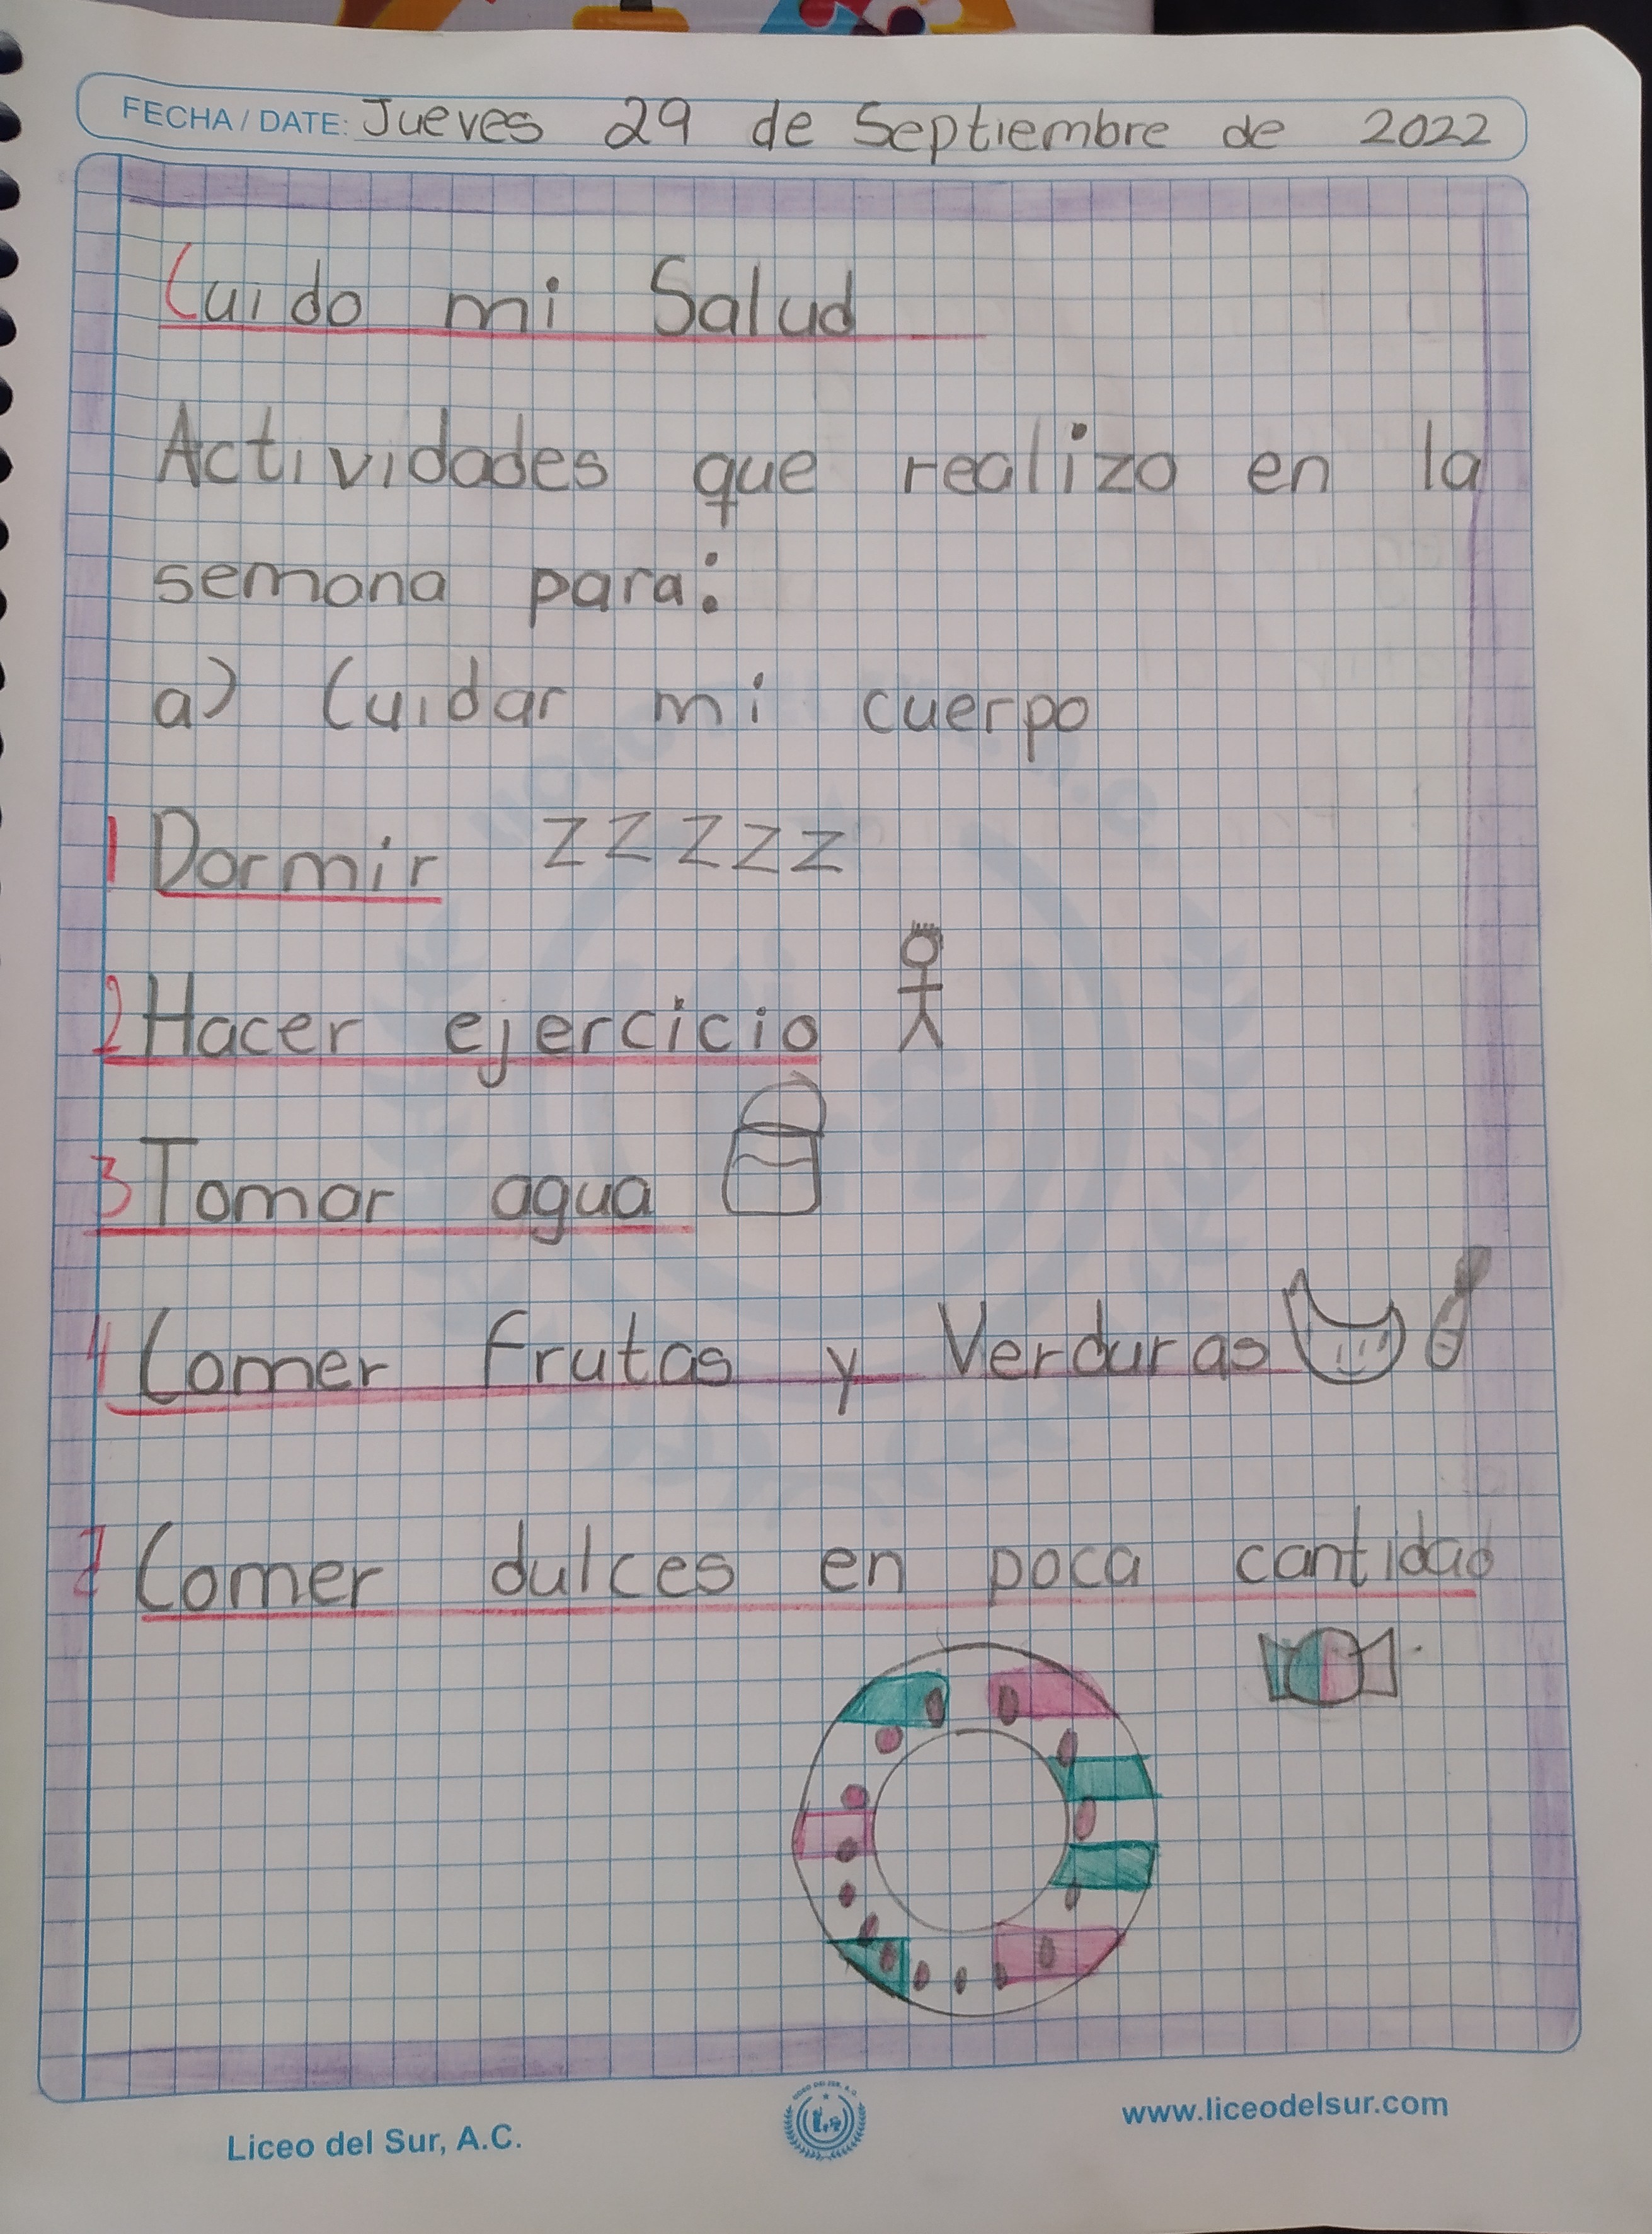 FECHA / DATE: Jueves 29 de Septiembre de 2022
Cuido mi Salud
Actividades que realizo en la
semana para:
a) Cuidar mi cuerpo
1 Dormir ZZZZZ
2 Hacer ejercicio
3 Tomar agua
4 Comer frutas y Verduras
Comer dulces en poca cantidad
Liceo del Sur, A.C.
www.liceodelsur.com